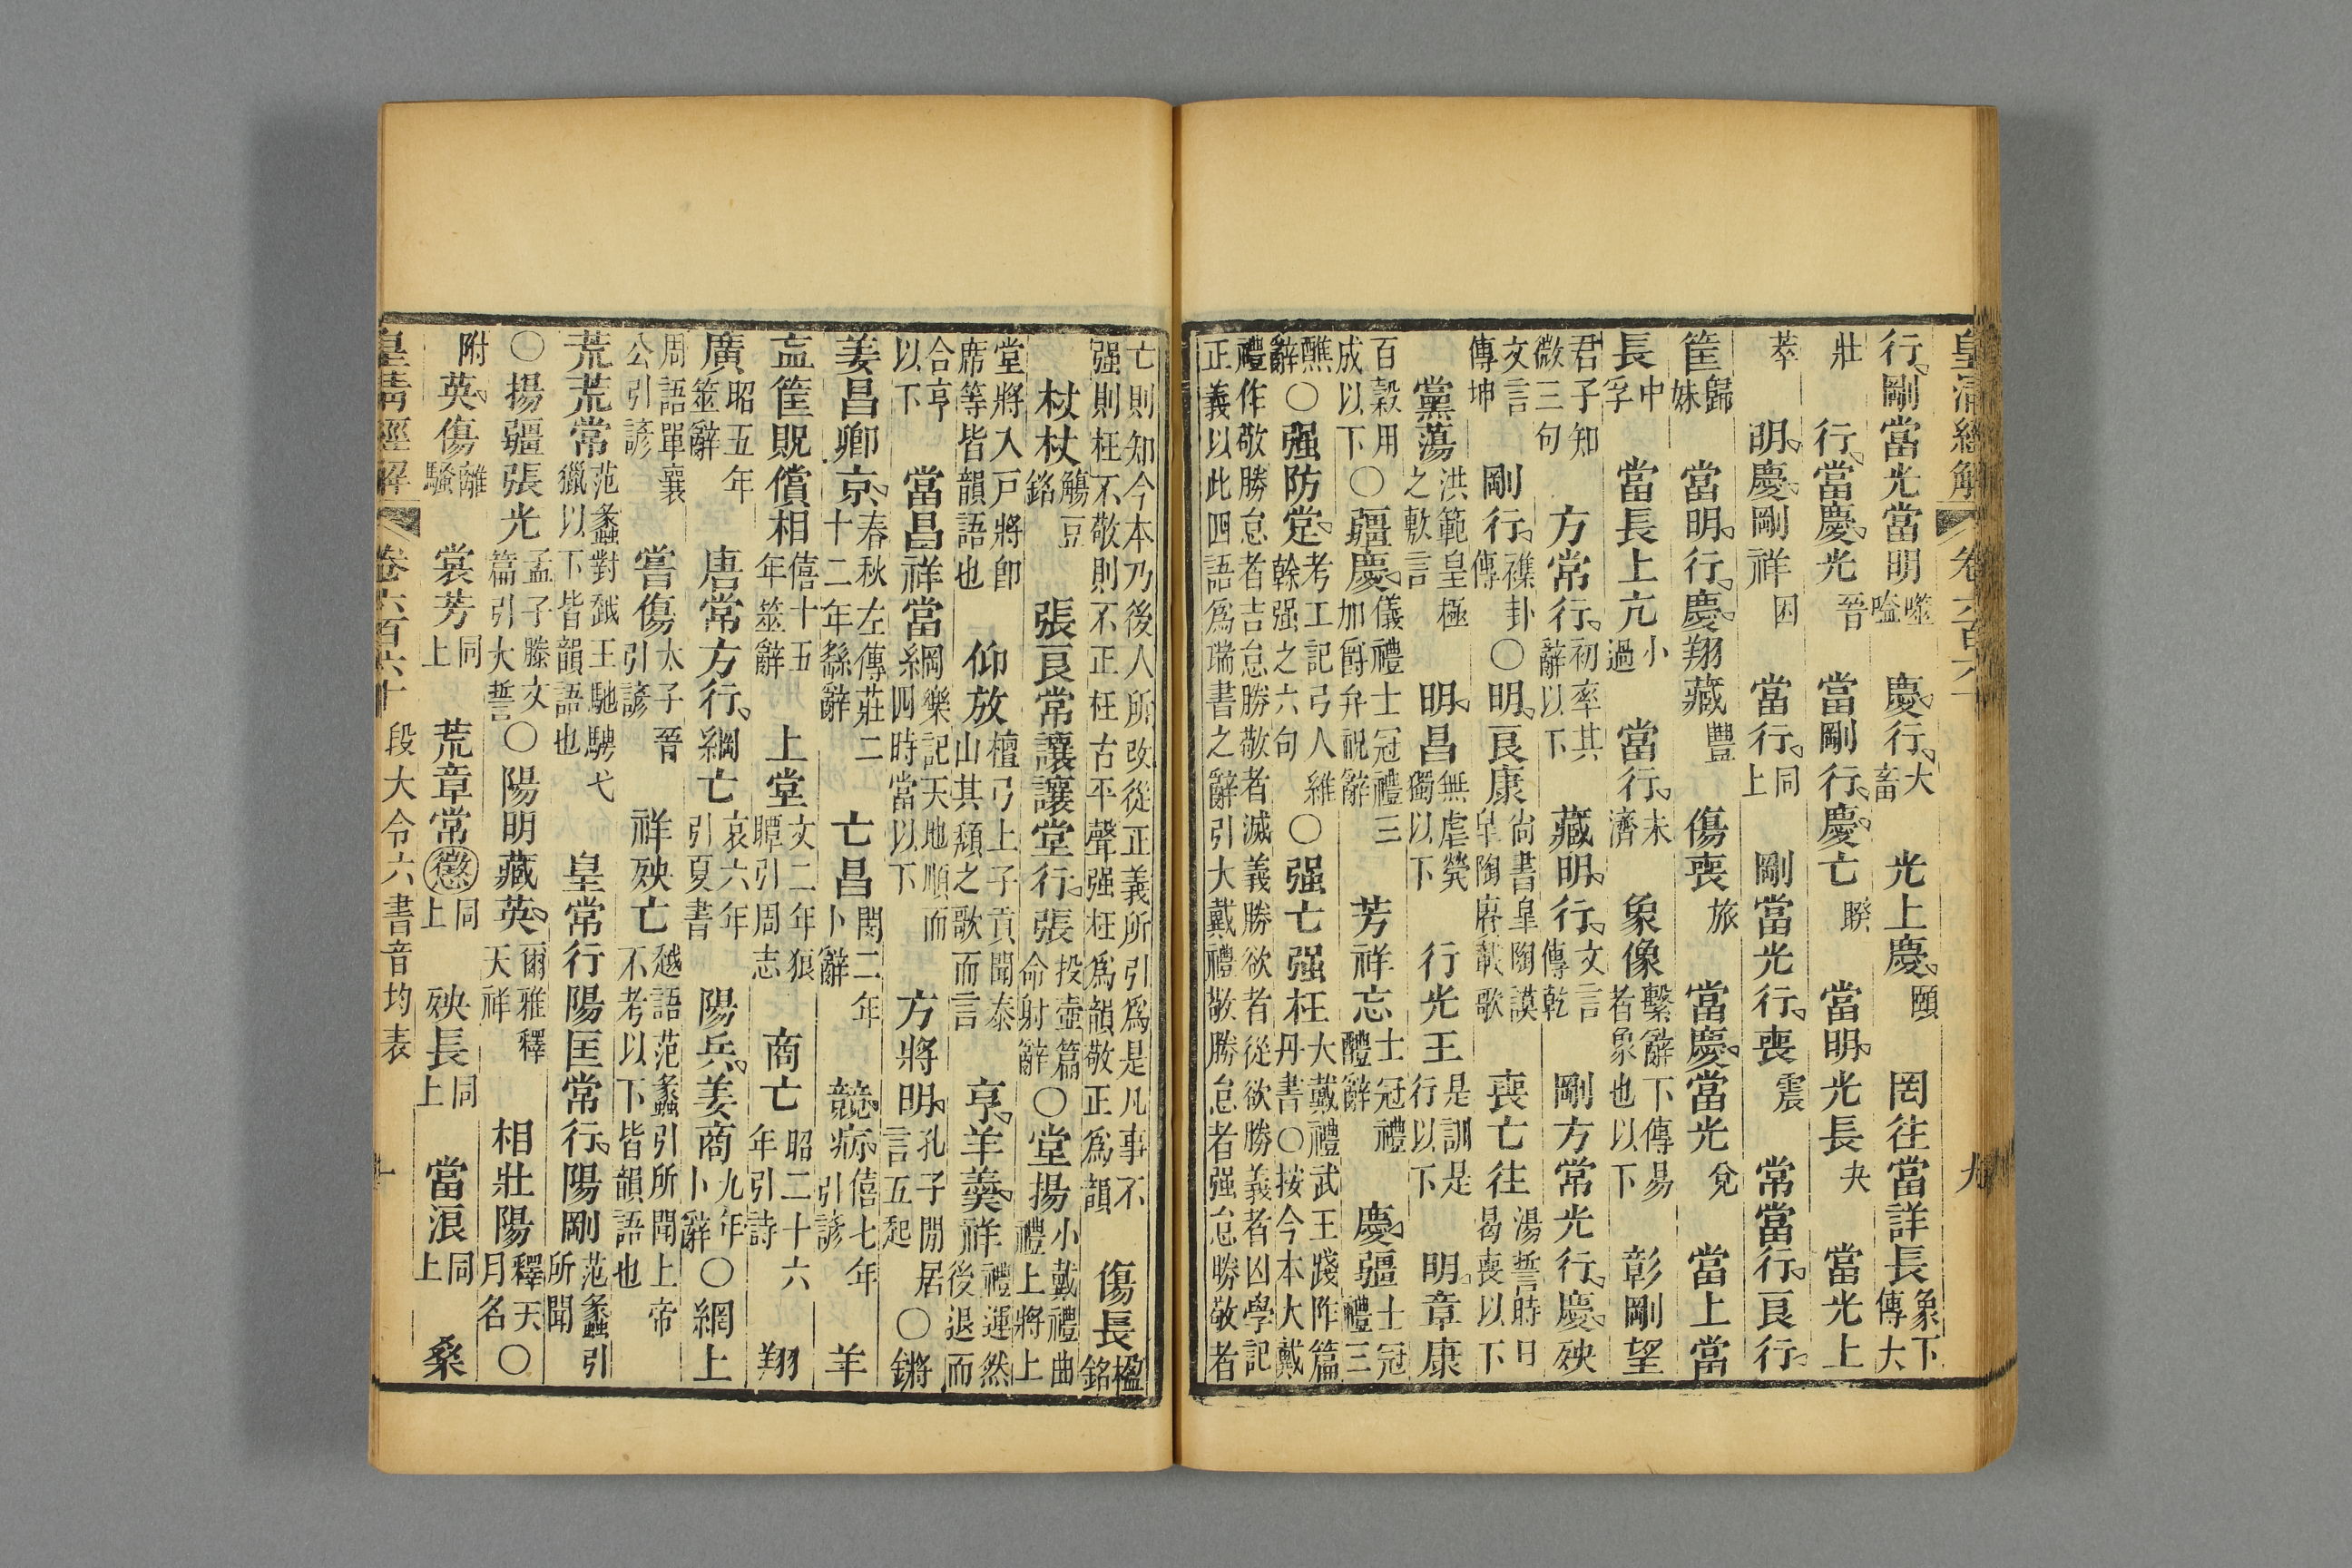 皇清經解 卷六百六十 九
行剛當光當明噬嗑 慶行大畜 光上慶頤 罔往當詳長象下傳大
壯 行當慶光晉 當剛行慶亡睽 當明光長夬 當光上
萃 明慶剛祥困 當行同上 剛當光行喪震 常當行良行
筐歸妹 當明行慶翔藏豐 傷喪旅 當慶當光兌 當上當
長中孚 當長上亢小過 當行未濟 象像繫辭下傳易者象也以下 彰剛望
君子知微三句 方常行初率其辭以下 藏明行文言傳乾 剛方常光行慶殃
文言傳坤 剛行襍卦傳○明良康尚書皐陶謨皐陶賡載歌 喪亡往湯誓時日曷喪以下
黨蕩洪範皇極之敷言 明昌無虐煢獨以下 行光王是訓是行以下 明章康
百穀用成以下○疆慶儀禮士冠禮三加爵弁祝辭 芳祥忘士冠禮醴辭 慶疆士冠禮三
醮辭○强防定考工記弓人維幹强之六句○强亡强枉大戴禮武王踐阼篇丹書○按今本大戴
禮作敬勝怠者吉怠勝敬者滅義勝欲者從欲勝義者凶學記
正義以此四語爲瑞書之辭引大戴禮敬勝怠者强怠勝敬者
亡則知今本乃後人所改從正義所引爲是凡事不
强則枉不敬則不正枉古平聲强枉爲韻敬正爲韻 傷長楹銘
杖杖觴豆銘 張良常讓讓堂行張投壺篇命射辭○堂揚小戴禮曲禮上將上
堂將入戸將卽席等皆韻語也 仰放檀弓上子貢聞泰山其頹之歌而言 亨羊羹祥禮運然後退而
合亨以下 當昌祥當綱樂記天地順而四時當以下 方將明孔子閒居言五起○鏘
姜昌卿京春秋左傳莊二十二年繇辭 亡昌閔二年卜辭 競病僖七年引諺 羊
衁筐貺償相僖十五年筮辭 上堂文二年狼瞫引周志 商亡昭二十六年引詩 翔
廣昭五年筮辭 唐常方行綱亡哀六年引夏書 陽兵姜商九年卜辭○網上
周語單襄公引諺 嘗傷太子晉引諺 祥殃亡越語范蠡引所聞上帝不考以下皆韻語也
荒荒常范蠡對越王馳騁弋獵以下皆韻語也 皇常行陽匡常行陽剛范蠡引所聞
○揚疆張光孟子滕文篇引大誓○陽明藏英爾雅釋天祥 相壯陽釋天月名○
附 英傷離騷 裳芳同上 荒章常懲同上 殃長同上 當浪同上 桑
皇清經解 卷六百六十 段大令六書音均表 十